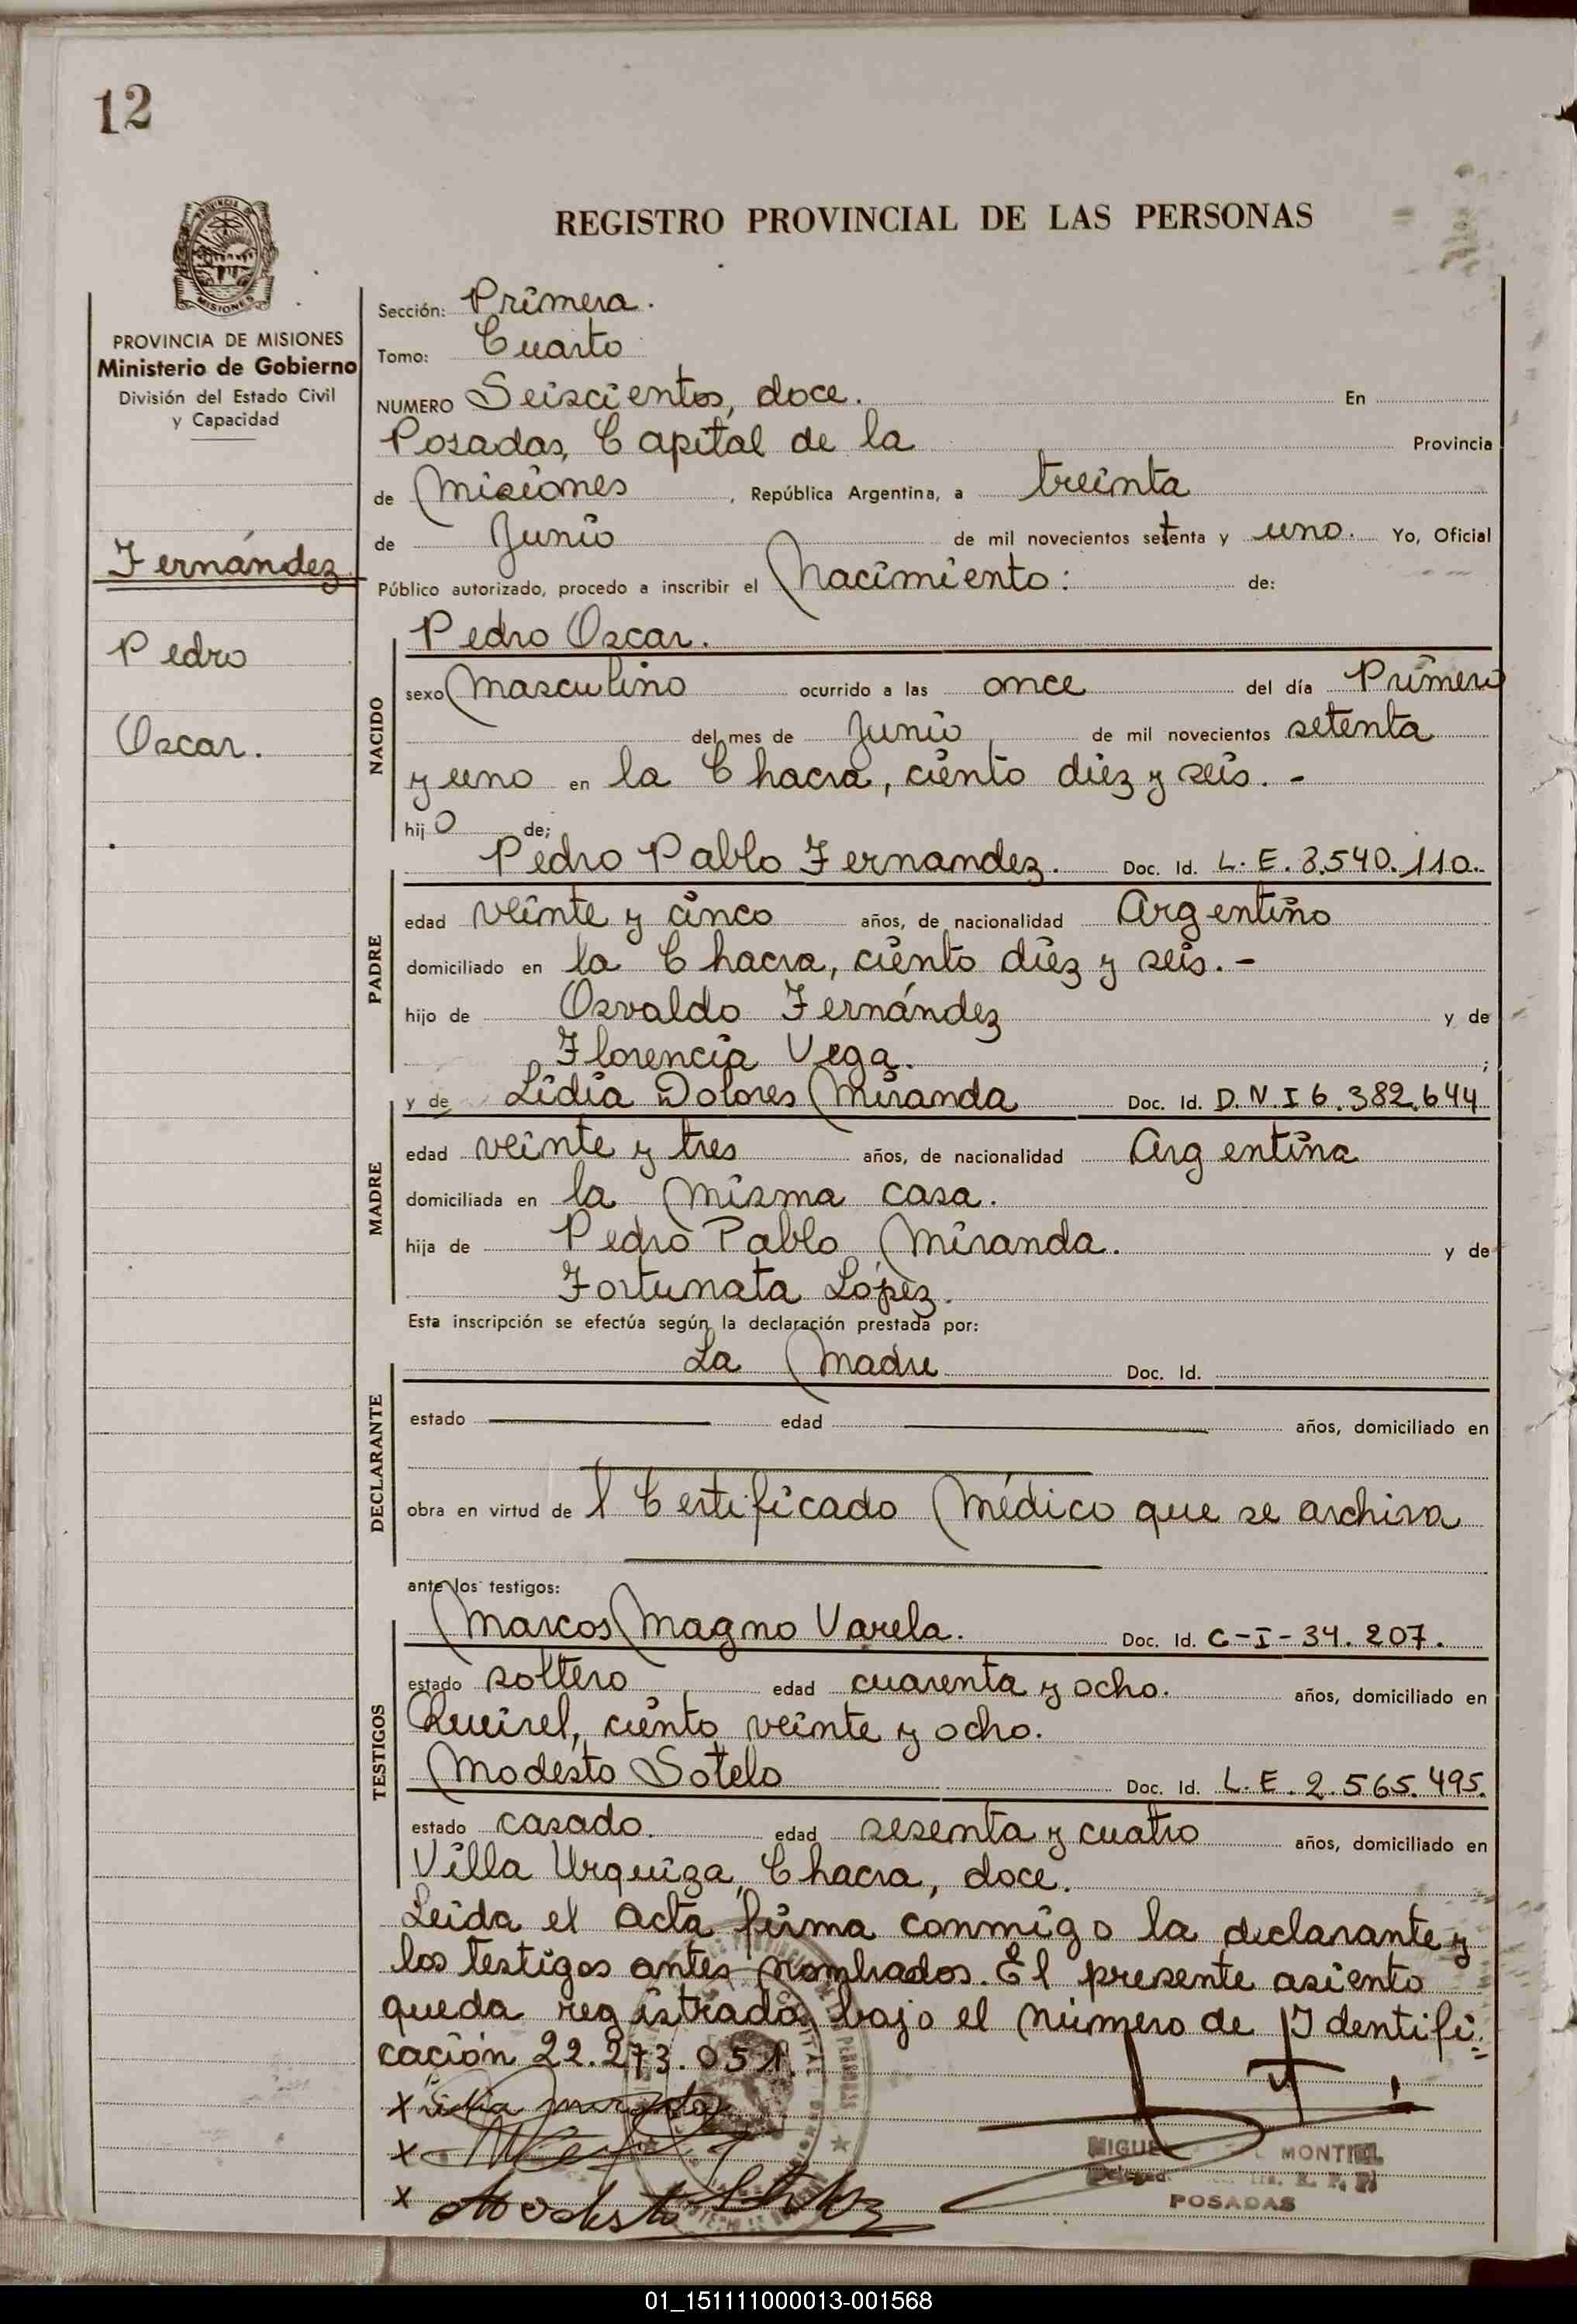 12
REGISTRO PROVINCIAL DE LAS PERSONAS
MISIONES
PROVINCIA DE MISIONES
Ministerio de Gobierno
División del Estado Civil
y Capacidad
Fernández
Pedro
Oscar.
Sección: Primera.
Tomo: Cuarto
NUMERO Seiscientos, doce. En
Posadas, Capital de la Provincia
de Misiones, República Argentina, a treinta
de Junio de mil novecientos setenta y uno. Yo, Oficial
Público autorizado, procedo a inscribir el Nacimiento: de:
NACIDO
Pedro Oscar.
sexo Masculino ocurrido a las once del día Primero
del mes de Junio de mil novecientos setenta
y uno en la Chacra, ciento diez y seis. -
hijo de;
PADRE
Pedro Pablo Fernandez. Doc. Id. L. E. 8.540.110.
edad veinte y cinco años, de nacionalidad Argentino
domiciliado en la Chacra, ciento diez y seis. -
hijo de Osvaldo Fernández y de
Florencia Vega. ;
MADRE
y de Lidia Dolores Miranda Doc. Id. D.N.I 6.382.644
edad veinte y tres años, de nacionalidad Argentina
domiciliada en la misma casa.
hija de Pedro Pablo Miranda. y de
Fortunata López.
Esta inscripción se efectúa según la declaración prestada por:
DECLARANTE
La Madre Doc. Id.
estado edad años, domiciliado en
obra en virtud de l Certificado Médico que se archiva
ante los testigos:
TESTIGOS
Marcos Magno Varela. Doc. Id. C-I-34.207.
estado soltero edad cuarenta y ocho. años, domiciliado en
Queirel, ciento veinte y ocho.
Modesto Sotelo Doc. Id. L. E. 2.565.495.
estado casado. edad sesenta y cuatro años, domiciliado en
Villa Urquiza, Chacra, doce.
Leida el acta firma conmigo la declarante y
los testigos antes nombrados. El presente asiento
queda registrado bajo el número de Identifi
cación 22.273.051.
x
x
x Modesto
MIGUEL MONTIEL
POSADAS
01_151111000013-001568